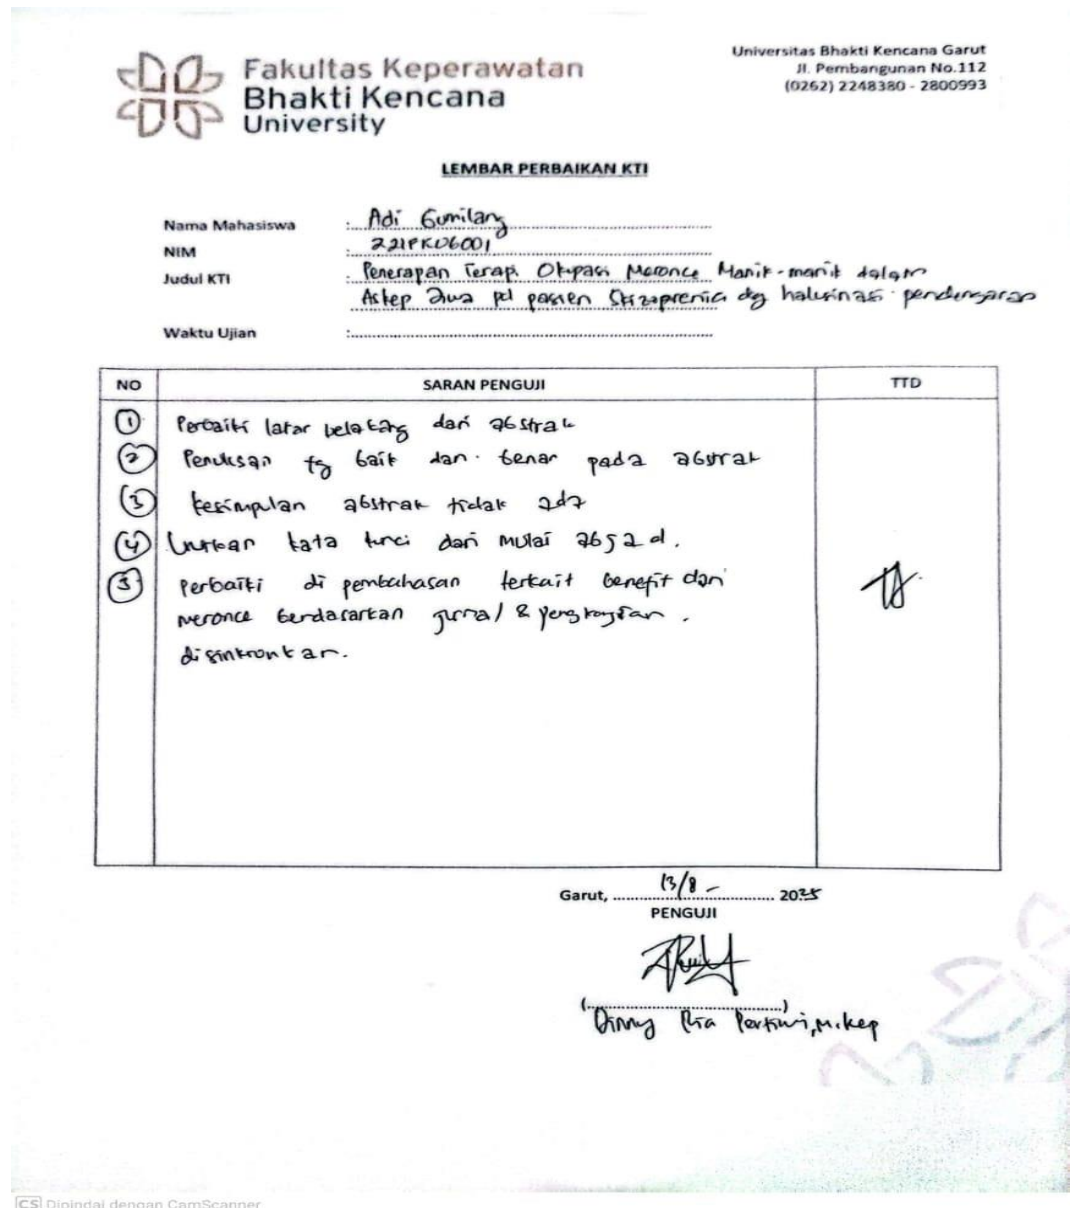 Fakultas Keperawatan
Bhakti Kencana
University
Universitas Bhakti Kencana Garut
Jl. Pembangunan No.112
(0262) 2248380 - 2800993
LEMBAR PERBAIKAN KTI
Nama Mahasiswa : Adi Gumilang
NIM : 221FK06001
Judul KTI : Penerapan Terapi Okupasi Meronce Manik-manik dalam
Askep Jiwa pd pasien Skizoprenia dg halusinasi pendengaran
Waktu Ujian :
NO SARAN PENGUJI TTD
1 Perbaiki latar belakang dari abstrak
2 Penulisan yg baik dan benar pada abstrak
3 kesimpulan abstrak tidak ada
4 Urutkan kata kunci dari mulai abjad.
5 Perbaiki di pembahasan terkait benefit dari
meronce berdasarkan jurnal & pengkajian.
disinkronkan.
Garut, 13/8 - 2025
PENGUJI
(....................)
Dinny Ria Pertiwi, M.kep
CS Dipindai dengan CamScanner